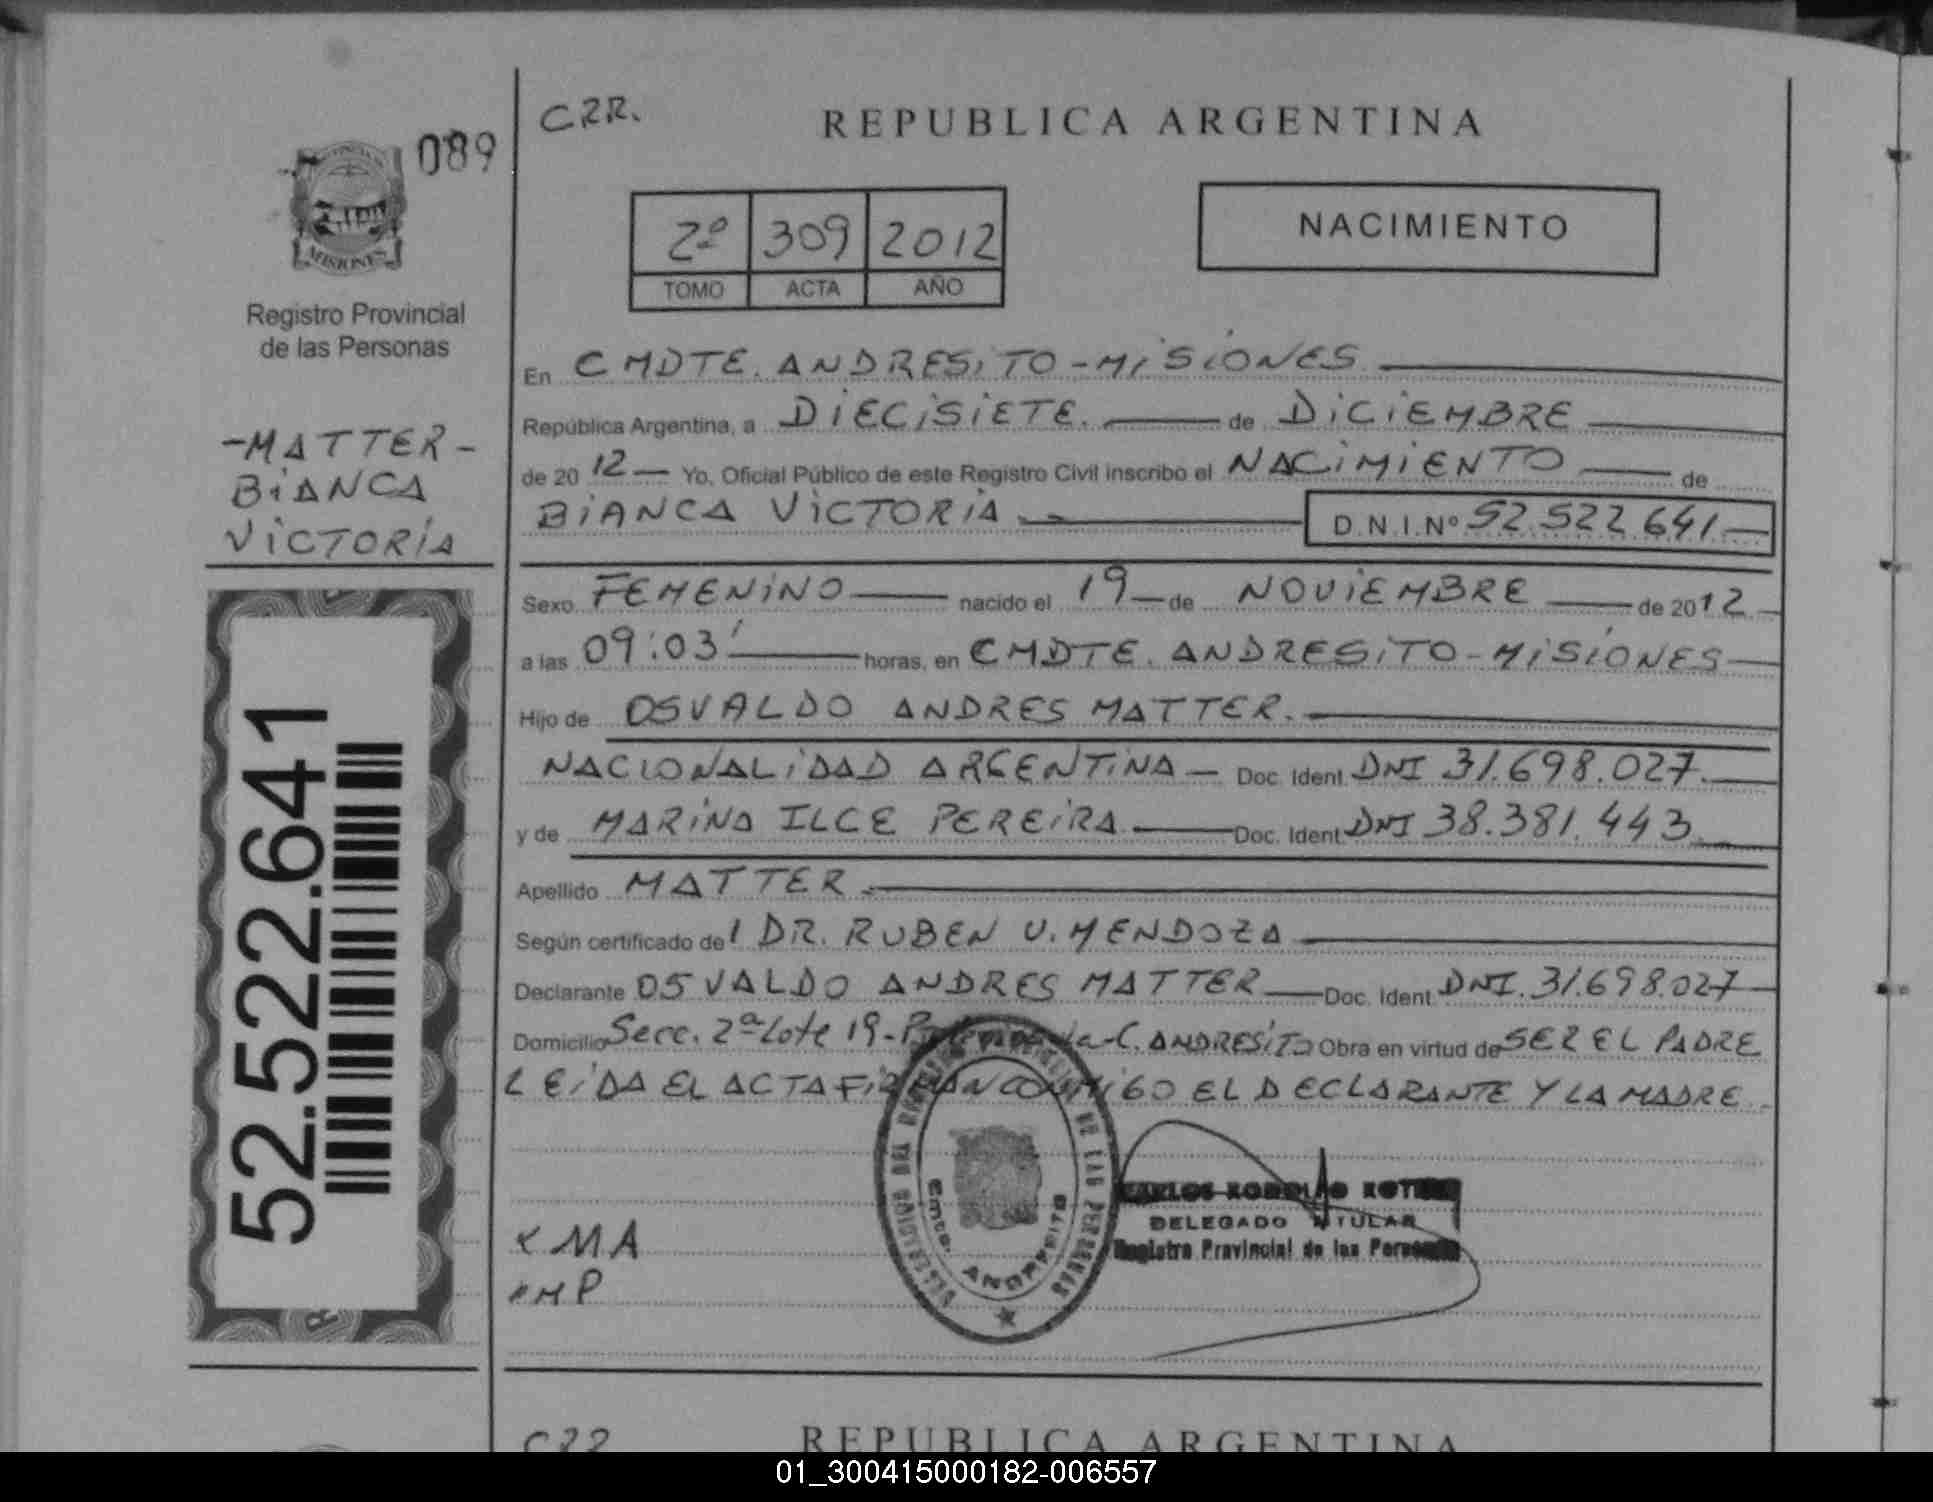 C2R.
REPUBLICA ARGENTINA
089
MISIONES
Registro Provincial
de las Personas
2º 309 2012
TOMO ACTA AÑO
NACIMIENTO
-MATTER-
BIANCA
VICTORIA
52.522.641
En CMDTE. ANDRESITO-MISIONES
República Argentina, a DIECISIETE. de DICIEMBRE
de 2012 Yo, Oficial Público de este Registro Civil inscribo el NACIMIENTO de
BIANCA VICTORIA D.N.I.Nº 52.522.641
Sexo FEMENINO nacido el 19 de NOVIEMBRE de 2012
a las 09:03' horas, en CMDTE. ANDRESITO-MISIONES
Hijo de OSVALDO ANDRES MATTER.
NACIONALIDAD ARGENTINA Doc. Ident. DNI 31.698.027.
y de MARINA ILCE PEREIRA Doc. Ident. DNI 38.381.443
Apellido MATTER
Según certificado del DR. RUBEN U. MENDOZA
Declarante OSVALDO ANDRES MATTER Doc. Ident. DNI. 31.698.027
Domicilio Secc. 2ª Lote 19- C. ANDRESITO Obra en virtud de SER EL PADRE
LEIDA EL ACTA FIRMAN CONMIGO EL DECLARANTE Y LA MADRE.
DELEGACION DEL REGISTRO PROVINCIAL DE LAS PERSONAS
Cmte. ANDRESITO
CARLOS
DELEGADO TITULAR
Registro Provincial de las Personas
x MA
x MP
C22
REPUBLICA ARGENTINA
01_300415000182-006557